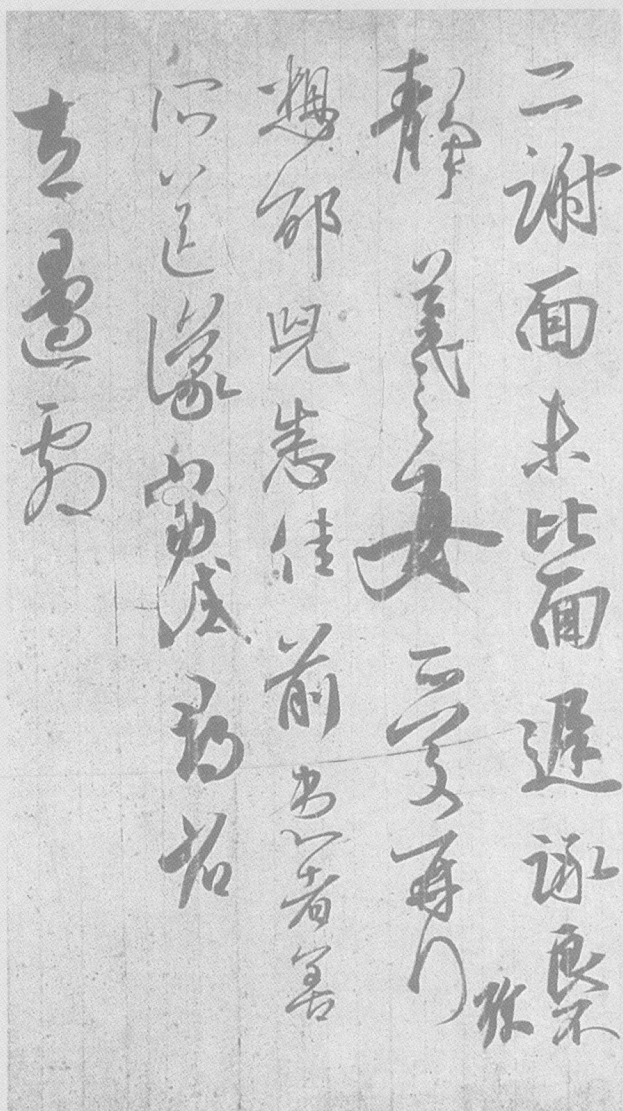 二謝面未比面遲詠良不
靜羲之女愛再拜
想邵兒悉佳前患者善
所送議當試尋省
左邊劇